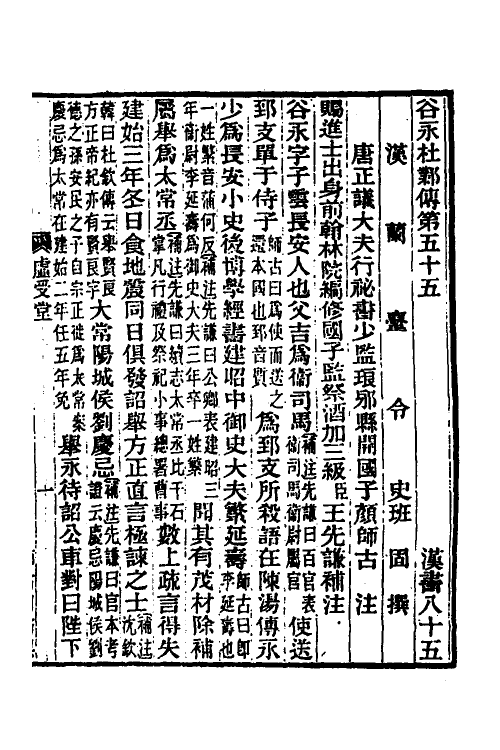 谷永杜鄴傳第五十五　漢書八十五
漢蘭臺令史班固撰
唐正議大夫行祕書少監琅邪縣開國子顏師古注
賜進士出身前翰林院編修國子監祭酒加三級臣王先謙補注
谷永字子雲長安人也父吉為衛司馬補注先謙曰百官表衛司馬衛尉屬官使送
郅支單于侍子師古曰為使而送之還本國也郅音質為郅支所殺語在陳湯傳永
少為長安小史後博學經書建昭中御史大夫繁延壽師古曰即李延壽也
一姓繁音蒲何反補注先謙曰公卿表建昭三年衛尉李延壽為御史大夫三年卒一姓繁聞其有茂材除補
屬舉為太常丞補注先謙曰續志太常丞比千石掌凡行禮及祭祀小事總署曹事數上疏言得失
建始三年冬日食地震同日俱發詔舉方正直言極諫之士補注沈欽
韓曰杜欽傳云舉賢良方正帝紀亦有賢良字大常陽城侯劉慶忌補注先謙曰官本考證云慶忌陽城侯劉
德之孫安民之子自宗正徙為太常案慶忌為太常在建始二年任五年免舉永待詔公車對曰陛下
虛受堂